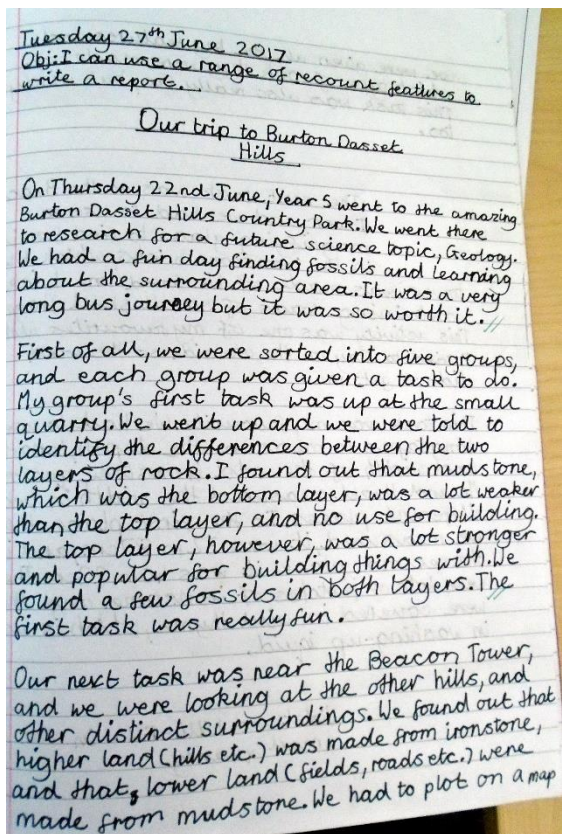 Tuesday 27th June 2017
Obj: I can use a range of recount features to
write a report.
Our trip to Burton Dasset
Hills
On Thursday 22nd June, Year 5 went to the amazing
Burton Dasset Hills Country Park. We went there
to research for a future science topic, Geology.
We had a fun day finding fossils and learning
about the surrounding area. It was a very
long bus journey but it was so worth it. //
First of all, we were sorted into five groups,
and each group was given a task to do.
My group's first task was up at the small
quarry. We went up and we were told to
identify the differences between the two
layers of rock. I found out that mudstone,
which was the bottom layer, was a lot weaker
than the top layer, and no use for building.
The top layer, however, was a lot stronger
and popular for building things with. We
found a few fossils in both layers. The
first task was really fun.
Our next task was near the Beacon Tower,
and we were looking at the other hills, and
other distinct surroundings. We found out that
higher land (hills etc.) was made from ironstone,
and that, lower land (fields, roads etc.) were
made from mudstone. We had to plot on a map